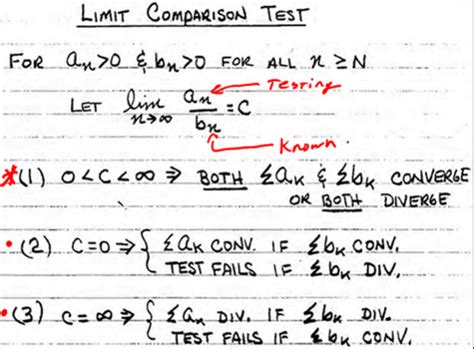 LIMIT COMPARISON TEST
FOR aₙ>0 & bₙ>0 FOR ALL n ≥ N
LET lim n→∞ aₙ/bₙ = C
Testing
Known
*(1) 0<C<∞ ⇒ BOTH Σaₖ & Σbₖ CONVERGE
OR BOTH DIVERGE
•(2) C=0 ⇒ { Σaₖ CONV. IF Σbₖ CONV.
TEST FAILS IF Σbₖ DIV.
•(3) C=∞ ⇒ { Σaₖ DIV. IF Σbₖ DIV.
TEST FAILS IF Σbₖ CONV.